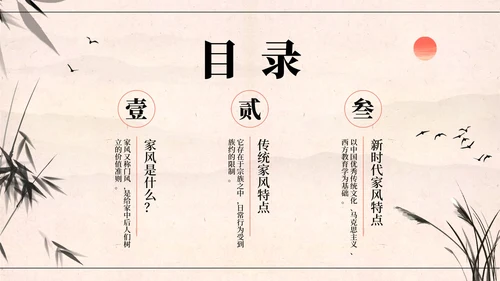 目录
壹
家风是什么？
家风又称门风，是给家中后人们树
立的价值准则。
贰
传统家风特点
它存在于宗族之中，日常行为受到
族约的限制。
叁
新时代家风特点
以中国优秀传统文化、马克思主义、
西方教育学为基础。